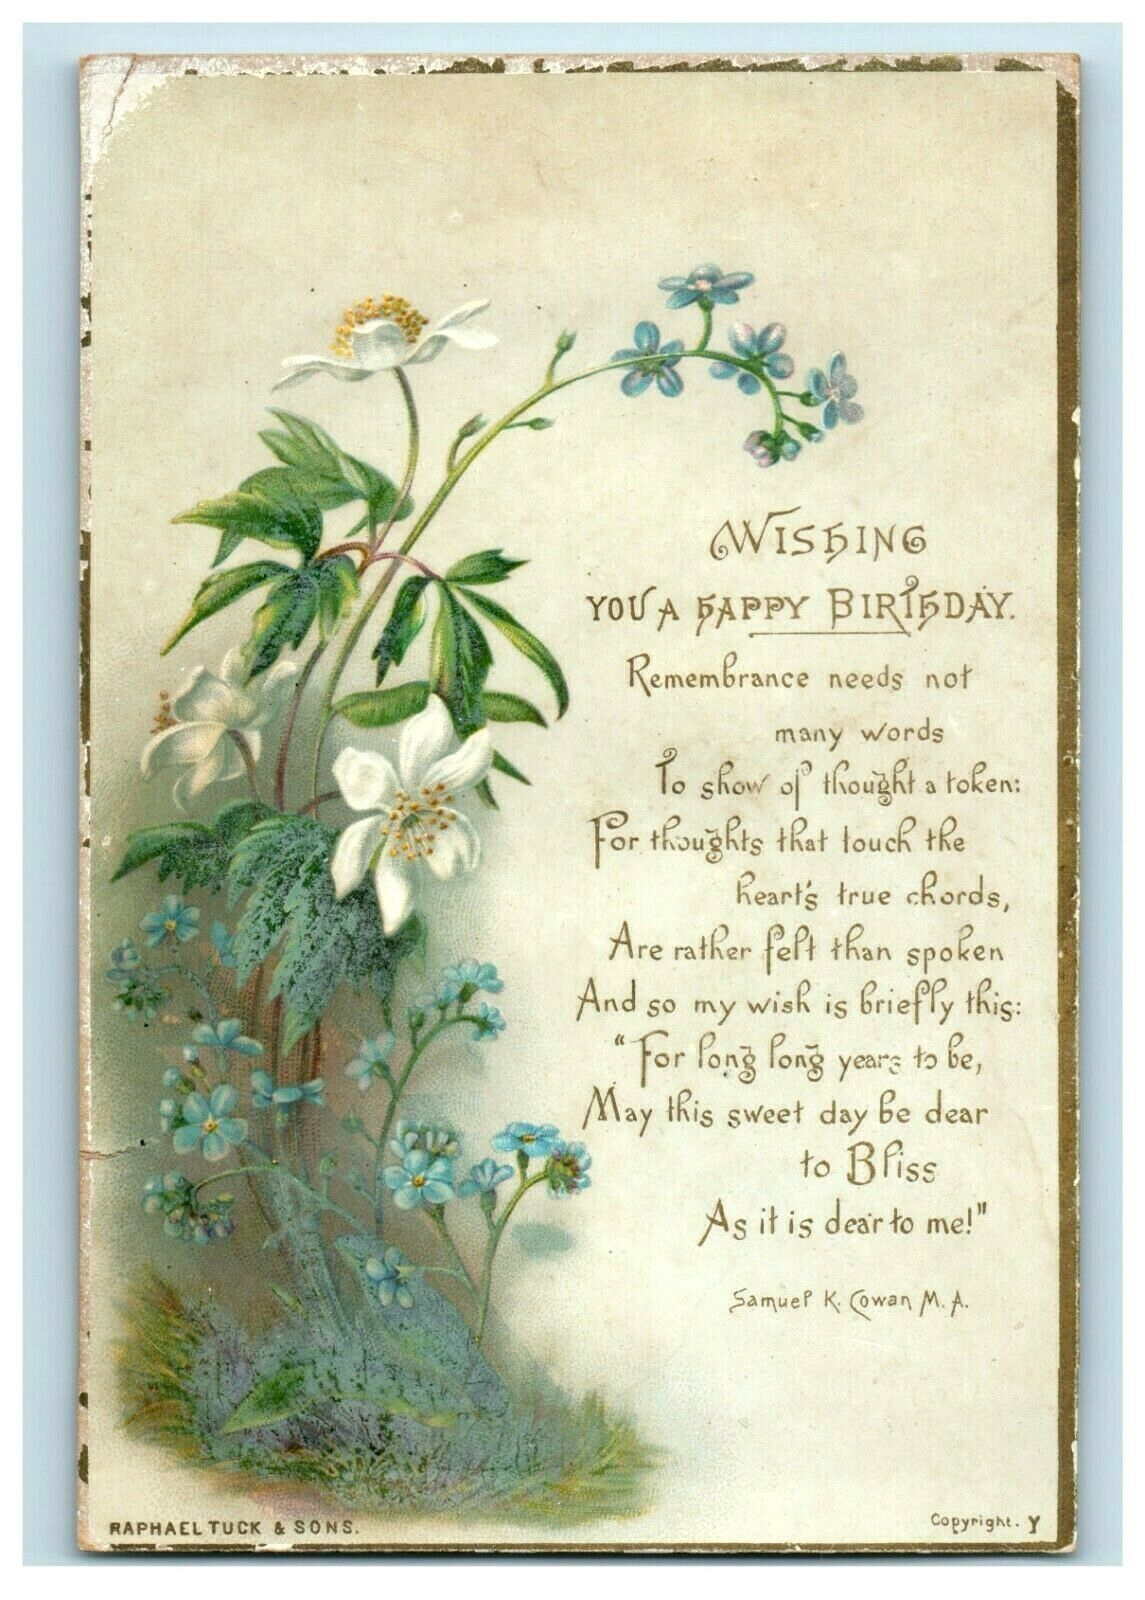 WISHING
YOU A HAPPY BIRTHDAY.
Remembrance needs not
many words
To show of thought a token:
For thoughts that touch the
heart's true chords,
Are rather felt than spoken
And so my wish is briefly this:
"For long long years to be,
May this sweet day be dear
to Bliss
As it is dear to me!"
Samuel K. Cowan M.A.
RAPHAEL TUCK & SONS.
Copyright. Y